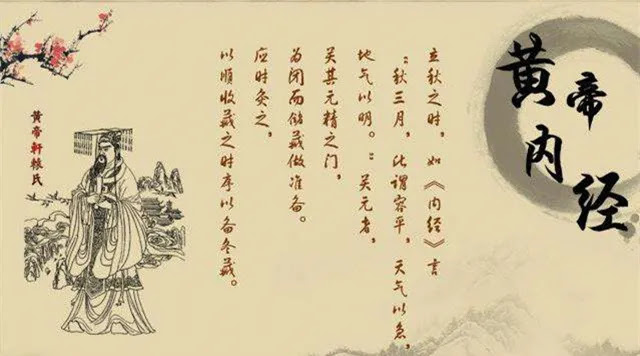 黄帝内经
立秋之时，如《内经》言
“秋三月，此谓容平，天气以急，
地气以明。”关元者，
关其元精之门，
为闭而储藏做准备。
应时灸之，
以顺收藏之时序以备冬藏。
黄帝軒辕氏